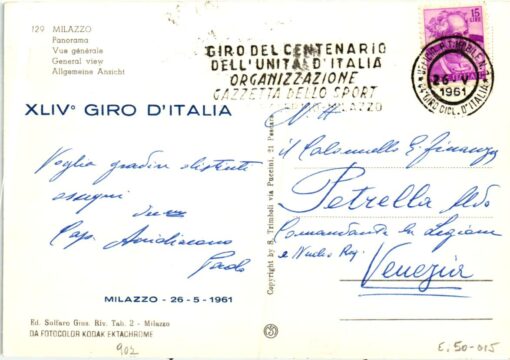 129 MILAZZO
Panorama
Vue générale
General view
Allgemeine Ansicht
XLIVº GIRO D'ITALIA
Voglia gradire distinti
ossequi
Cap.
Paolo
MILAZZO - 26-5-1961
Ed. Solfaro Gius. Riv. Tab. 2 - Milazzo
DA FOTOCOLOR KODAK EKTACHROME
902
GIRO DEL CENTENARIO
DELL'UNITÀ D'ITALIA
ORGANIZZAZIONE
GAZZETTA DELLO SPORT
MILAZZO
15
LIRE
26-V
1961
44º GIRO CICL. D'ITALIA
Copyright by S. Trimboli via Puccini, 21 Pescara
il Colonnello G. Finanza
Petrella Aldo
Comandante la Legione
e Nucleo Reg.
Venezia
E. 50-015